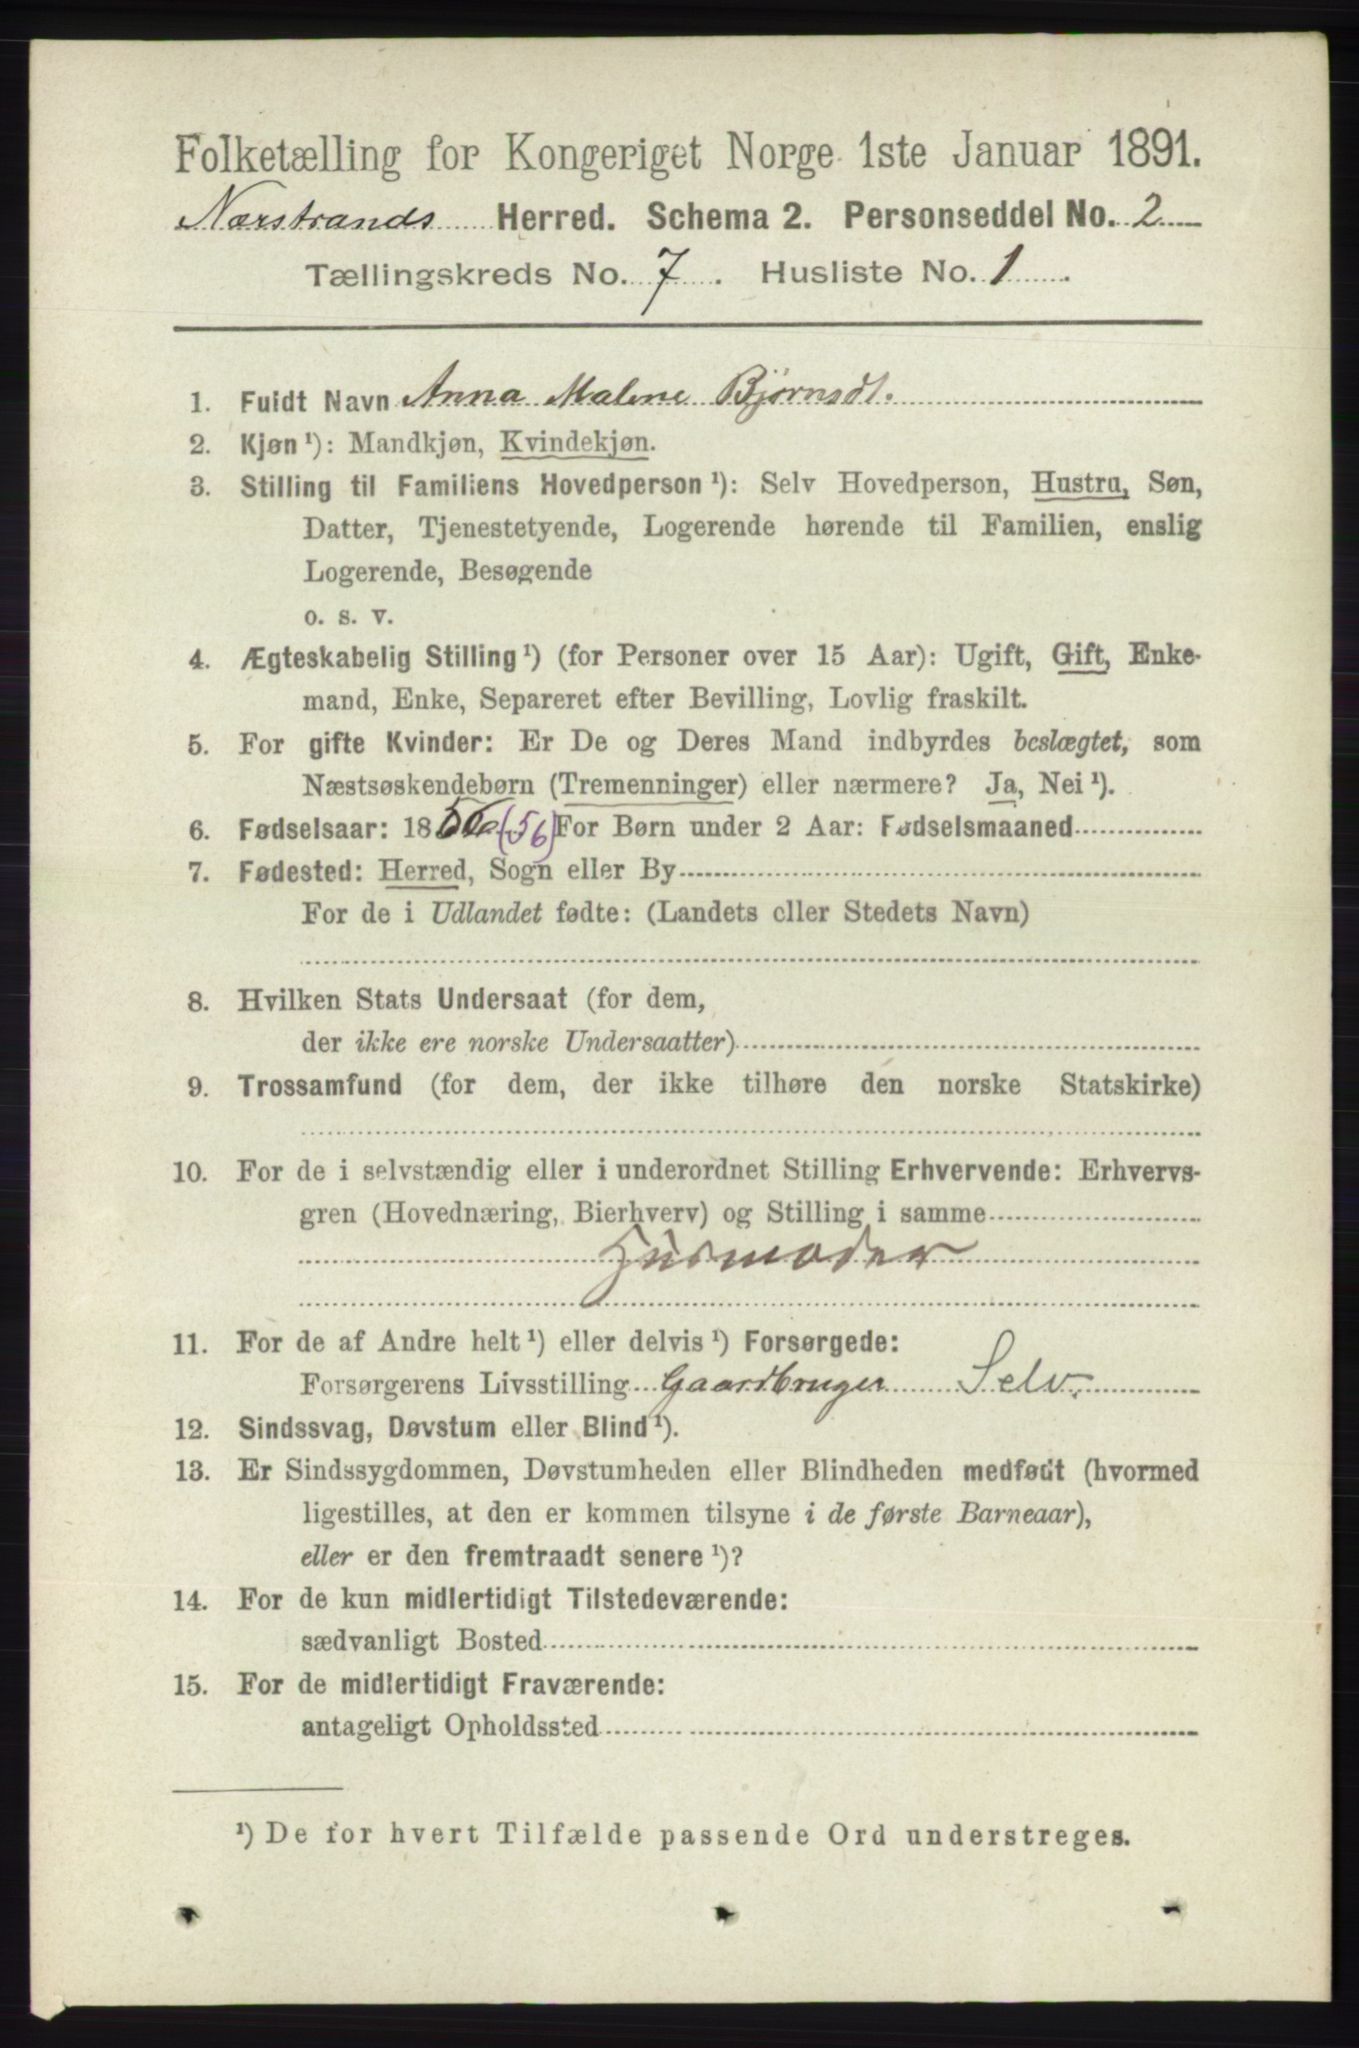 Folketælling for Kongeriget Norge 1ste Januar 1891.
Nærstrands Herred. Schema 2. Personseddel No. 2
Tællingskreds No. 7. Husliste No. 1.
1. Fuldt Navn Anna Malene Bjørnsdt.
2. Kjøn¹): Mandkjøn, Kvindekjøn.
3. Stilling til Familiens Hovedperson¹): Selv Hovedperson, Hustru, Søn,
Datter, Tjenestetyende, Logerende hørende til Familien, enslig
Logerende, Besøgende
o. s. v.
4. Ægteskabelig Stilling¹) (for Personer over 15 Aar): Ugift, Gift, Enke-
mand, Enke, Separeret efter Bevilling, Lovlig fraskilt.
5. For gifte Kvinder: Er De og Deres Mand indbyrdes beslægtet, som
Næstsøskendebørn (Tremenninger) eller nærmere? Ja, Nei¹).
6. Fødselsaar: 1856 (56) For Børn under 2 Aar: Fødselsmaaned
7. Fødested: Herred, Sogn eller By
For de i Udlandet fødte: (Landets eller Stedets Navn)
8. Hvilken Stats Undersaat (for dem,
der ikke ere norske Undersaatter)
9. Trossamfund (for dem, der ikke tilhøre den norske Statskirke)
10. For de i selvstændig eller i underordnet Stilling Erhvervende: Erhvervs-
gren (Hovednæring, Bierhverv) og Stilling i samme
Husmoder
11. For de af Andre helt¹) eller delvis¹) Forsørgede:
Forsørgerens Livsstilling Gaardbruger Selv.
12. Sindssvag, Døvstum eller Blind¹).
13. Er Sindssygdommen, Døvstumheden eller Blindheden medfødt (hvormed
ligestilles, at den er kommen tilsyne i de første Barneaar),
eller er den fremtraadt senere¹)?
14. For de kun midlertidigt Tilstedeværende:
sædvanligt Bosted
15. For de midlertidigt Fraværende:
antageligt Opholdssted
¹) De for hvert Tilfælde passende Ord understreges.